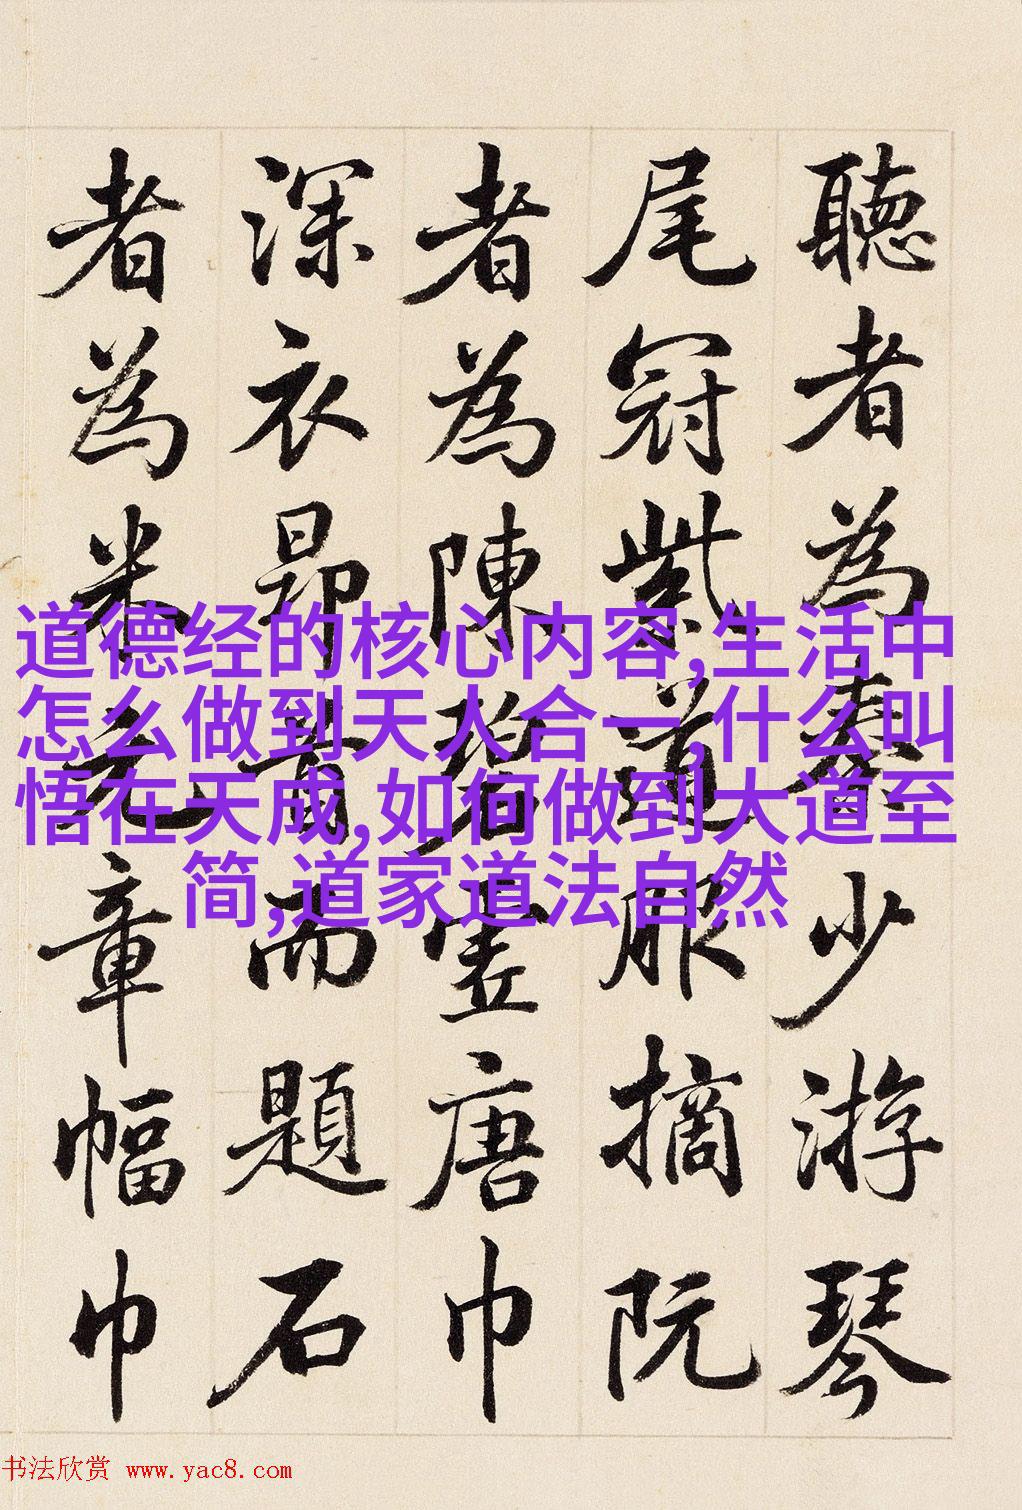 聽者為秦少游琴
尾冠紫道服摘阮
者為陳碧虛唐巾
深衣昂首而題石
者為米元章幅巾
道德经的核心内容,生活中
怎么做到天人合一,什么叫
悟在天成,如何做到大道至
简,道家道法自然
书法欣赏 www.yac8.com